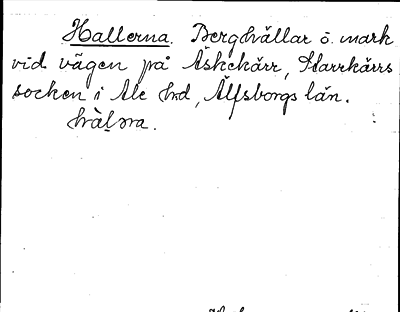 Hallerna. Berghällar ö. mark
vid vägen på Äskekärr, Starrkärrs
socken i Ale hrd, Älfsborgs län.